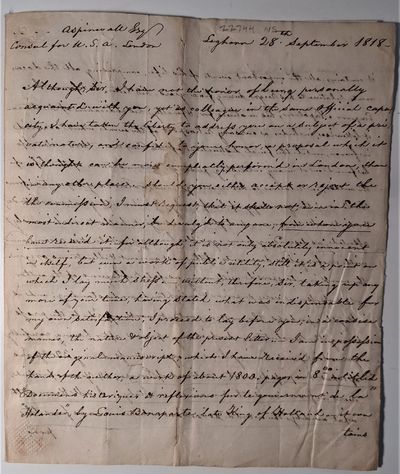 Aspinwall Esq
Consul for U.S.A. London
Leghorn 28th September 1818
Although, Sir, I have not the honor of being personally
acquainted with you, yet as colleague in the same Official capa
city, I have taken the liberty to address you on a subject of a pri
vate nature, and confide to your honor a proposal which it
is thought can be more completely performed in London, than
in any other place. should you either accept or reject the
the commission, I must request, that it shall not, even in the
most indirect manner, be divulged to any one, from whom you
have received it; for although it is not only absolutely innocent
in itself, but even a work of public utility, still it is a point on
which I lay much stress. without, therefore, Sir, taking up any
more of your time, having stated what was indispensable for
my own satisfaction, I proceed to lay before you, in a concise
manner, the nature & object of the present letter. I am in possession
of the original manuscript, which I have received from the
hands of the author, a work of about 1800 pages in 8vo entitled
"Documens historiques & reflexions sur le gouvernement de la
"Hollande", by Louis Bonaparte, late King of Holland. it con
tains